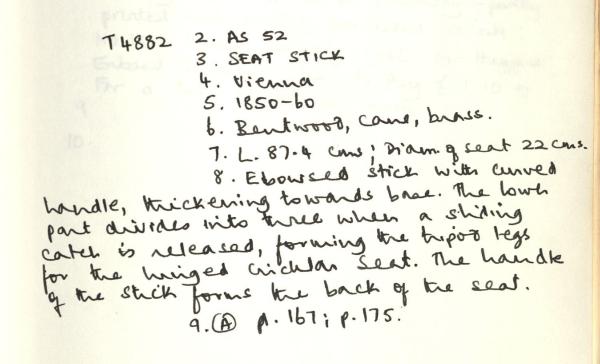 T4882 2. AS 52
3. SEAT STICK
4. Vienna
5. 1850-60
6. Bentwood, cane, brass.
7. L. 87.4 cms; Diam. of seat 22 cms.
8. Ebonised stick with curved
handle, thickening towards base. The lower
part divides into three when a sliding
catch is released, forming the tripod legs
for the hinged circular seat. The handle
of the stick forms the back of the seat.
9. Ⓐ p. 167; p. 175.